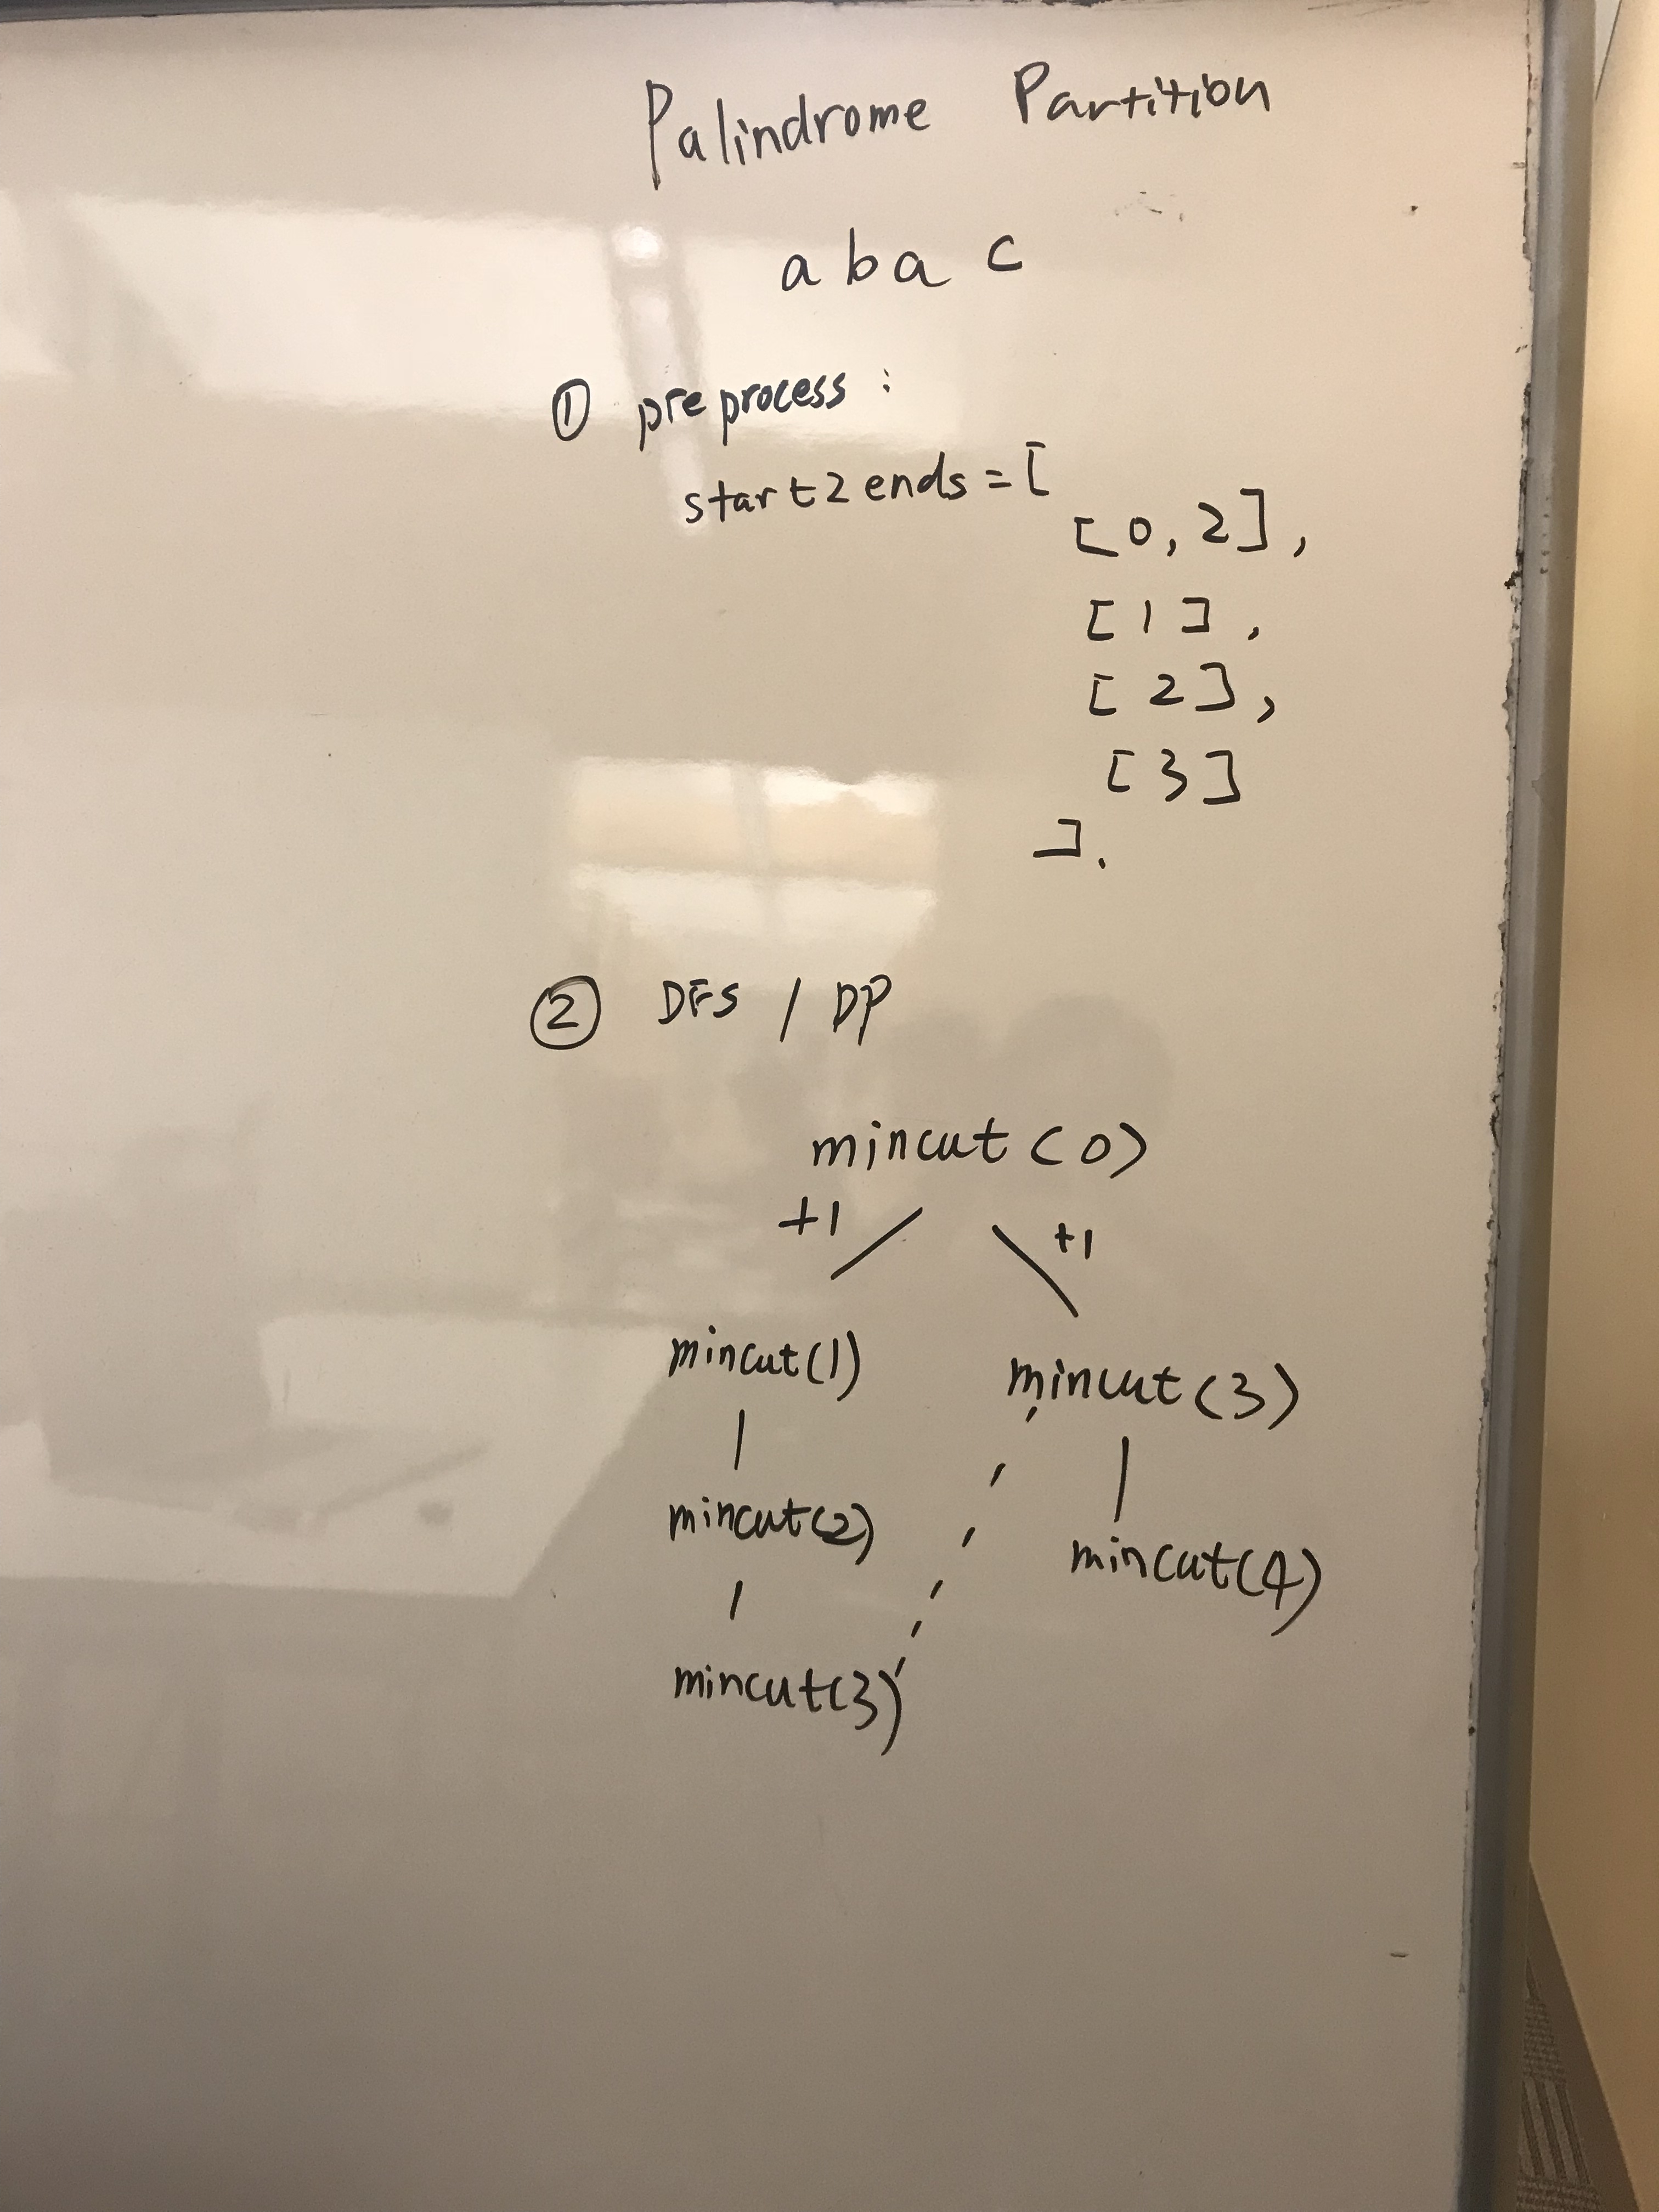 Palindrome Partition
a b a c
① preprocess :
start2ends = [
[0, 2],
[1],
[2],
[3]
].
② DFS / DP
mincut(0)
+1 +1
mincut(1) mincut(3)
mincut(2) mincut(4)
mincut(3)